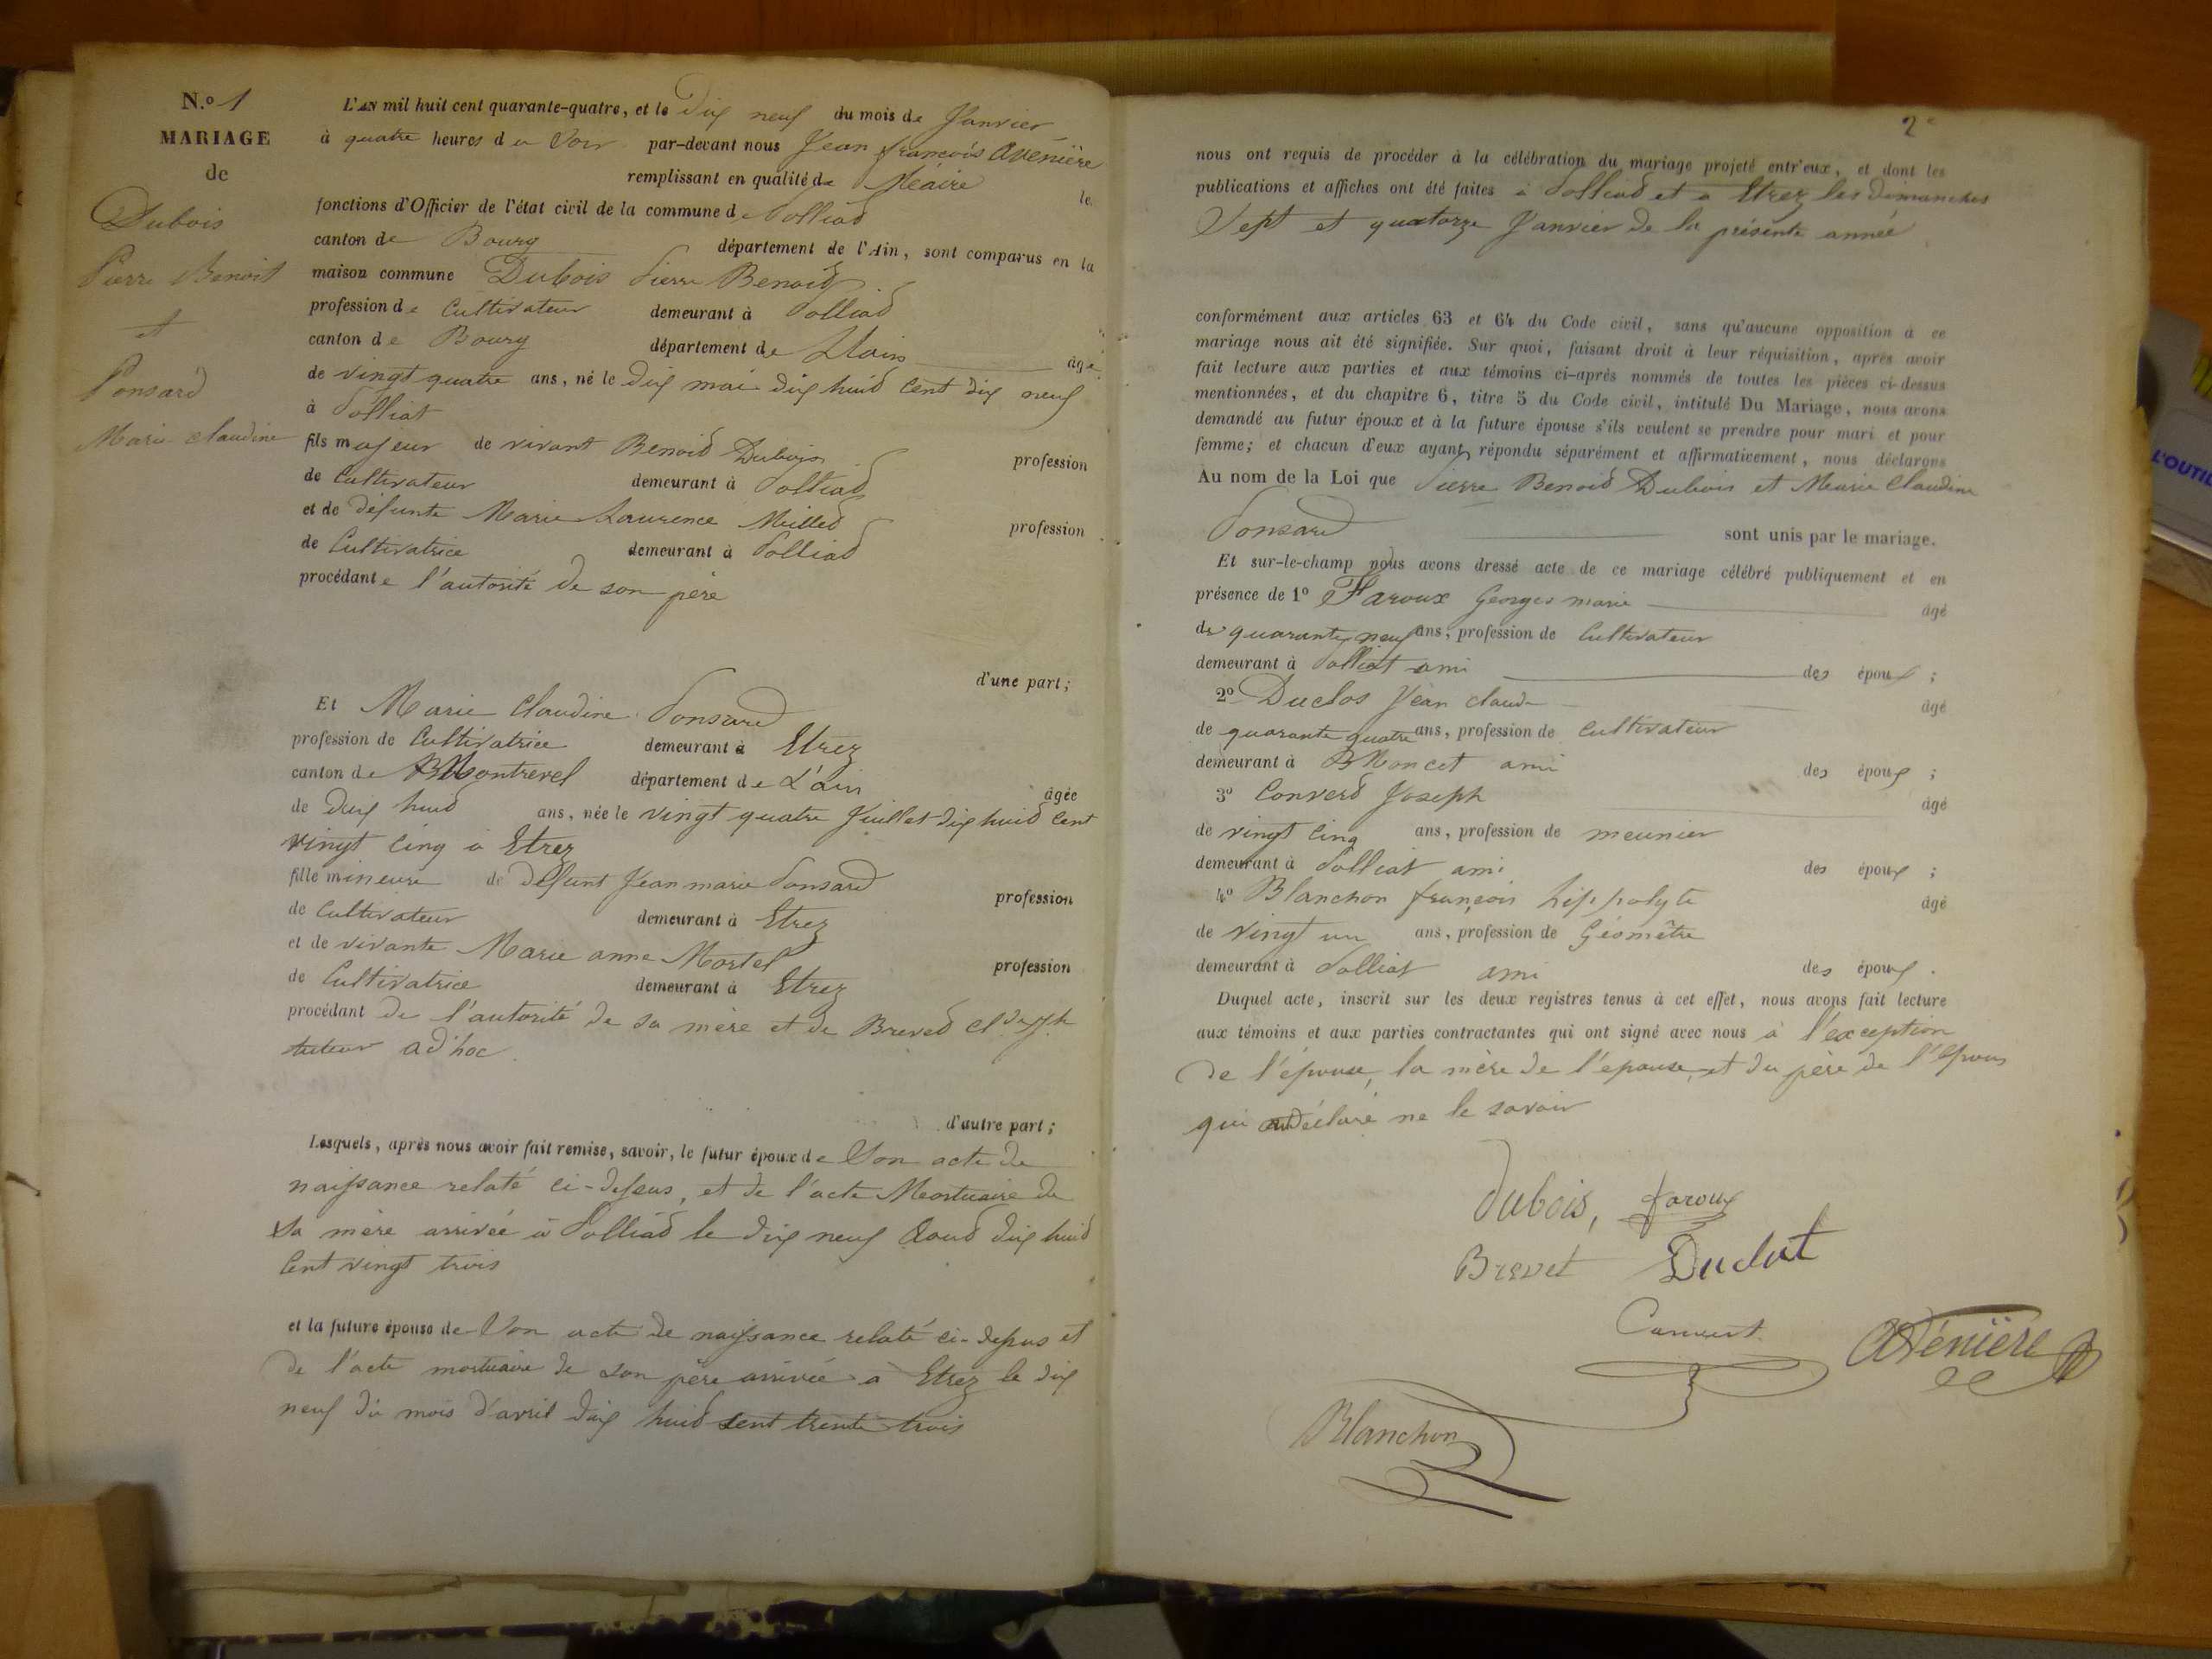 N.o 1
MARIAGE
de
Dubois
Pierre Benoit
et
Ponsard
Marie claudine
L'AN mil huit cent quarante-quatre, et le Dix neuf du mois de Janvier
à quatre heures du Soir par-devant nous Jean françois Avenière
remplissant en qualité de Meaire les
fonctions d'Officier de l'état civil de la commune de Polliad
canton de Bourg département de l'Ain, sont comparus en la
maison commune Dubois Pierre Benoid
profession de Cultivateur demeurant à Polliad
canton de Bourg département de Llain âgé
de vingt quatre ans, né le dix mai dix huid cent dix neuf
à Polliat
fils majeur de vivant Benoid Dubois profession
de Cultivateur demeurant à Polliad
et de défunte Marie Laurence Milled profession
de Cultivatrice demeurant à Polliad
procédant e l'autorité de son père
d'une part;
Et Marie Claudine Ponsard
profession de Cultivatrice demeurant à Etrez
canton de Montrevel département de L'ain âgée
de Dix huid ans, née le vingt quatre Juillet dix huid cent
vingt cinq à Etrez
fille mineure de Défunt Jean marie Ponsard profession
de Cultivateur demeurant à Etrez
et de vivante Marie anne Mortel profession
de Cultivatrice demeurant à Etrez
procédant de l'autorité de sa mère et de Breved Cl Jph
tuteur ad'hoc
d'autre part;
Lesquels, après nous avoir fait remise, savoir, le futur époux de Son acte de
naissance relaté ci-dessus, et de l'acte Meortuaire de
Sa mère arrivée à Polliad le dix neuf Aoud dix huid
Cent vingt trois
et la future épouse de Son acte de naissance relaté ci-dessus et
de l'acte mortuaire de son père arrivée à Etrez le dix
neuf du mois d'avril dix huid cent trente trois
2e
nous ont requis de procéder à la célébration du mariage projeté entr'eux, et dont les
publications et affiches ont été faites à Polliad et à Etrez les dimanches
Sept et quatorze Janvier de la présente année
conformément aux articles 63 et 64 du Code civil, sans qu'aucune opposition à ce
mariage nous ait été signifiée. Sur quoi, faisant droit à leur réquisition, après avoir
fait lecture aux parties et aux témoins ci-après nommés de toutes les pièces ci-dessus
mentionnées, et du chapitre 6, titre 5 du Code civil, intitulé Du Mariage, nous avons
demandé au futur époux et à la future épouse s'ils veulent se prendre pour mari et pour
femme; et chacun d'eux ayant répondu séparément et affirmativement, nous déclarons
Au nom de la Loi que Pierre Benoid Dubois et Marie Claudine
Ponsard sont unis par le mariage.
Et sur-le-champ nous avons dressé acte de ce mariage célébré publiquement et en
présence de 1o Faroux Georges marie âgé
de quarante neuf ans, profession de Cultivateur
demeurant à Polliat ami des époux ;
2o Duclos Jean claude âgé
de quarante quatre ans, profession de Cultivateur
demeurant à Moncet ami des époux ;
3o Converd Joseph âgé
de vingt cinq ans, profession de meunier
demeurant à Polliat ami des époux ;
4o Blanchon françois hippolyte âgé
de vingt un ans, profession de Géomêtre
demeurant à Polliat ami des époux .
Duquel acte, inscrit sur les deux registres tenus à cet effet, nous avons fait lecture
aux témoins et aux parties contractantes qui ont signé avec nous à l'exception
de l'épouse, la mère de l'épouse, et du père de l'époux
qui ont déclaré ne le savoir
Dubois, faroux
Brevet Duclot
Convert
AVénière
Blanchon
L'OUTIL